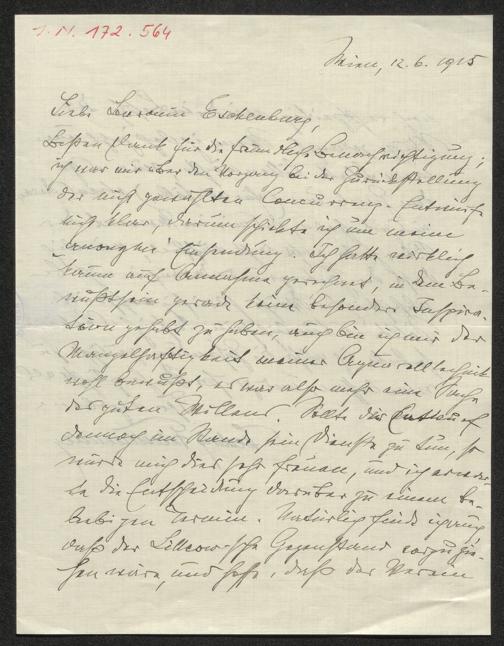 J.N. 172.564
Wien, 12.6.1915
Liebe Baronin Eschenburg,
besten Dank für die freundliche Benachrichtigung;
ich war mir über den Vorgang bei der Zurückstellung
der nicht gewählten Concurrenz-Entwürfe
nicht klar, darum schickte ich um meine
anonyme Einsendung. Ich hatte wirklich
kaum auf Annahme gerechnet, in dem Be-
wußtsein gerade keine besondere Inspira-
tion gehabt zu haben, auch bin ich mir der
Mangelhaftigkeit meiner Aquarelltechnik
wohl bewußt, es war also mehr eine Sache
des guten Willens. Sollte der Entwurf
dennoch im Stande sein Dienste zu tun, so
würde mich dies sehr freuen, und ich erwar-
te die Entscheidung darüber zu einem be-
liebigen Termin. Natürlich finde ich auch
daß der 'sche Gegenstand vorzuzie-
hen wäre, und hoffe, daß der Verein